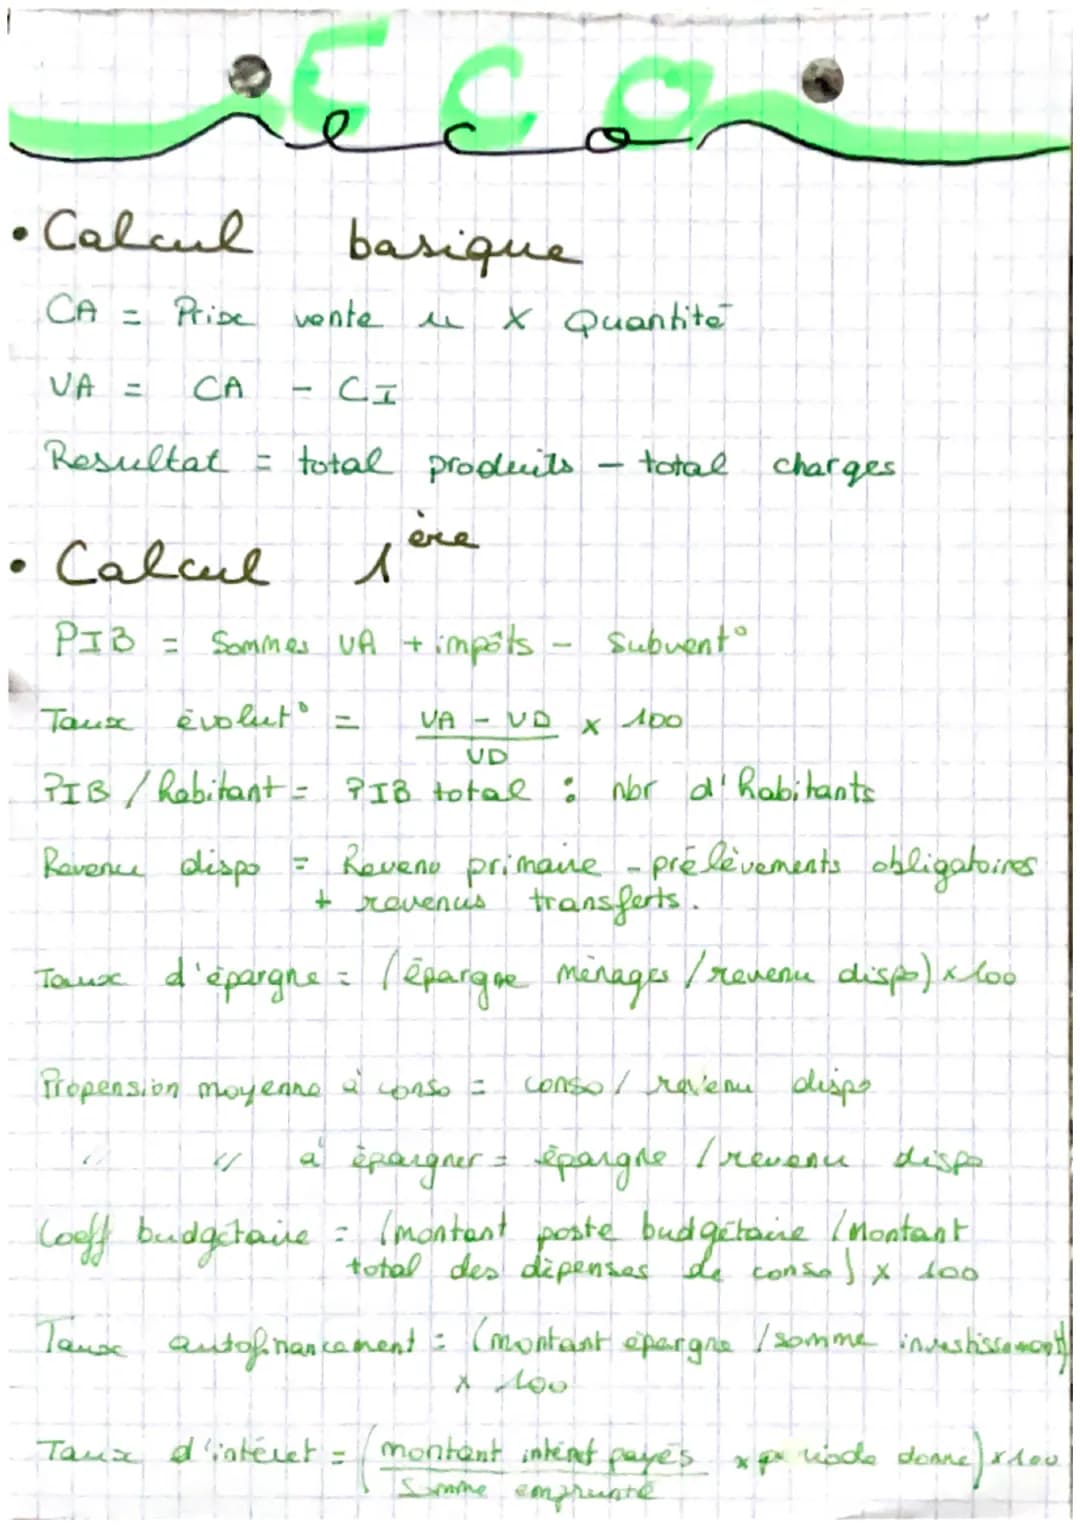 ECO
eco
• Calcul basique
CA = Prix vente u x Quantité
VA = CA - CI
Resultat = total produits - total charges
• Calcul 1ère
PIB = Sommes VA + impôts - Subvent°
Taux évolut° = VA - VD x 100
VD
PIB / habitant = PIB total : nbr d'habitants
Revenu dispo = Revenu primaire - prélèvements obligatoires
+ revenus transferts.
Taux d'épargne = (épargne ménages / revenu dispo) x 100
Propension moyenne à conso = conso / revenu dispo
" " à épargner = épargne / revenu dispo
Coeff budgétaire = (montant poste budgétaire / Montant
total des dépenses de conso) x 100
Taux autofinancement = (montant épargne / somme investissement)
x 100
Taux d'intéret = (montant intéret payés x période donne) x 100
Somme emprunté